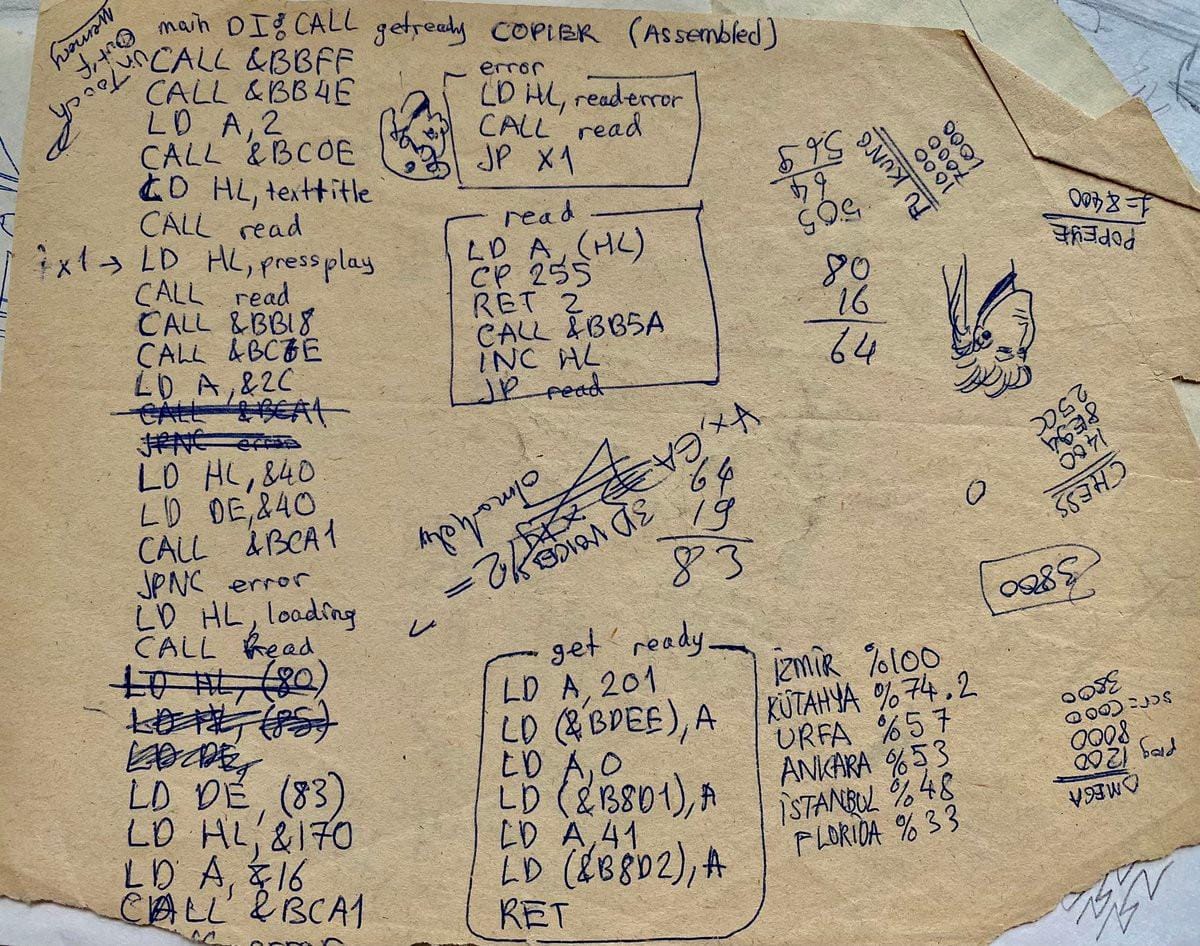 main DI: CALL getready COPIER (Assembled)
CALL &BBFF
CALL &BB4E
LD A,2
CALL &BC0E
LD HL,texttitle
CALL read
x1 → LD HL,pressplay
CALL read
CALL &BB18
CALL &BC6E
LD A,&2C
CALL &BCA1
JPNC error
LD HL,&40
LD DE,&40
CALL &BCA1
JPNC error
LD HL,loading
CALL read
LD HL,(80)
LD HL,(85)
LD DE,
LD DE,(83)
LD HL,&170
LD A,&16
CALL &BCA1
Touch
Out of
Memory
error
LD HL,readerror
CALL read
JP X1
read
LD A,(HL)
CP 255
RET Z
CALL &BB5A
INC HL
JP read
get ready
LD A,201
LD (&BDEE),A
LD A,0
LD (&B8D1),A
LD A,41
LD (&B8D2),A
RET
569
64
505
80
16
64
3D VOICE
=
64
19
83
KUNG
1000
7000
0000
POPEYE
1=&400
CHESS
1400
8E94
25CC
0
3800
İZMİR %100
KÜTAHYA %74.2
URFA %57
ANKARA %53
İSTANBUL %48
FLORIDA %33
OMEGA
prog 1200
8000
scr=C000
3800